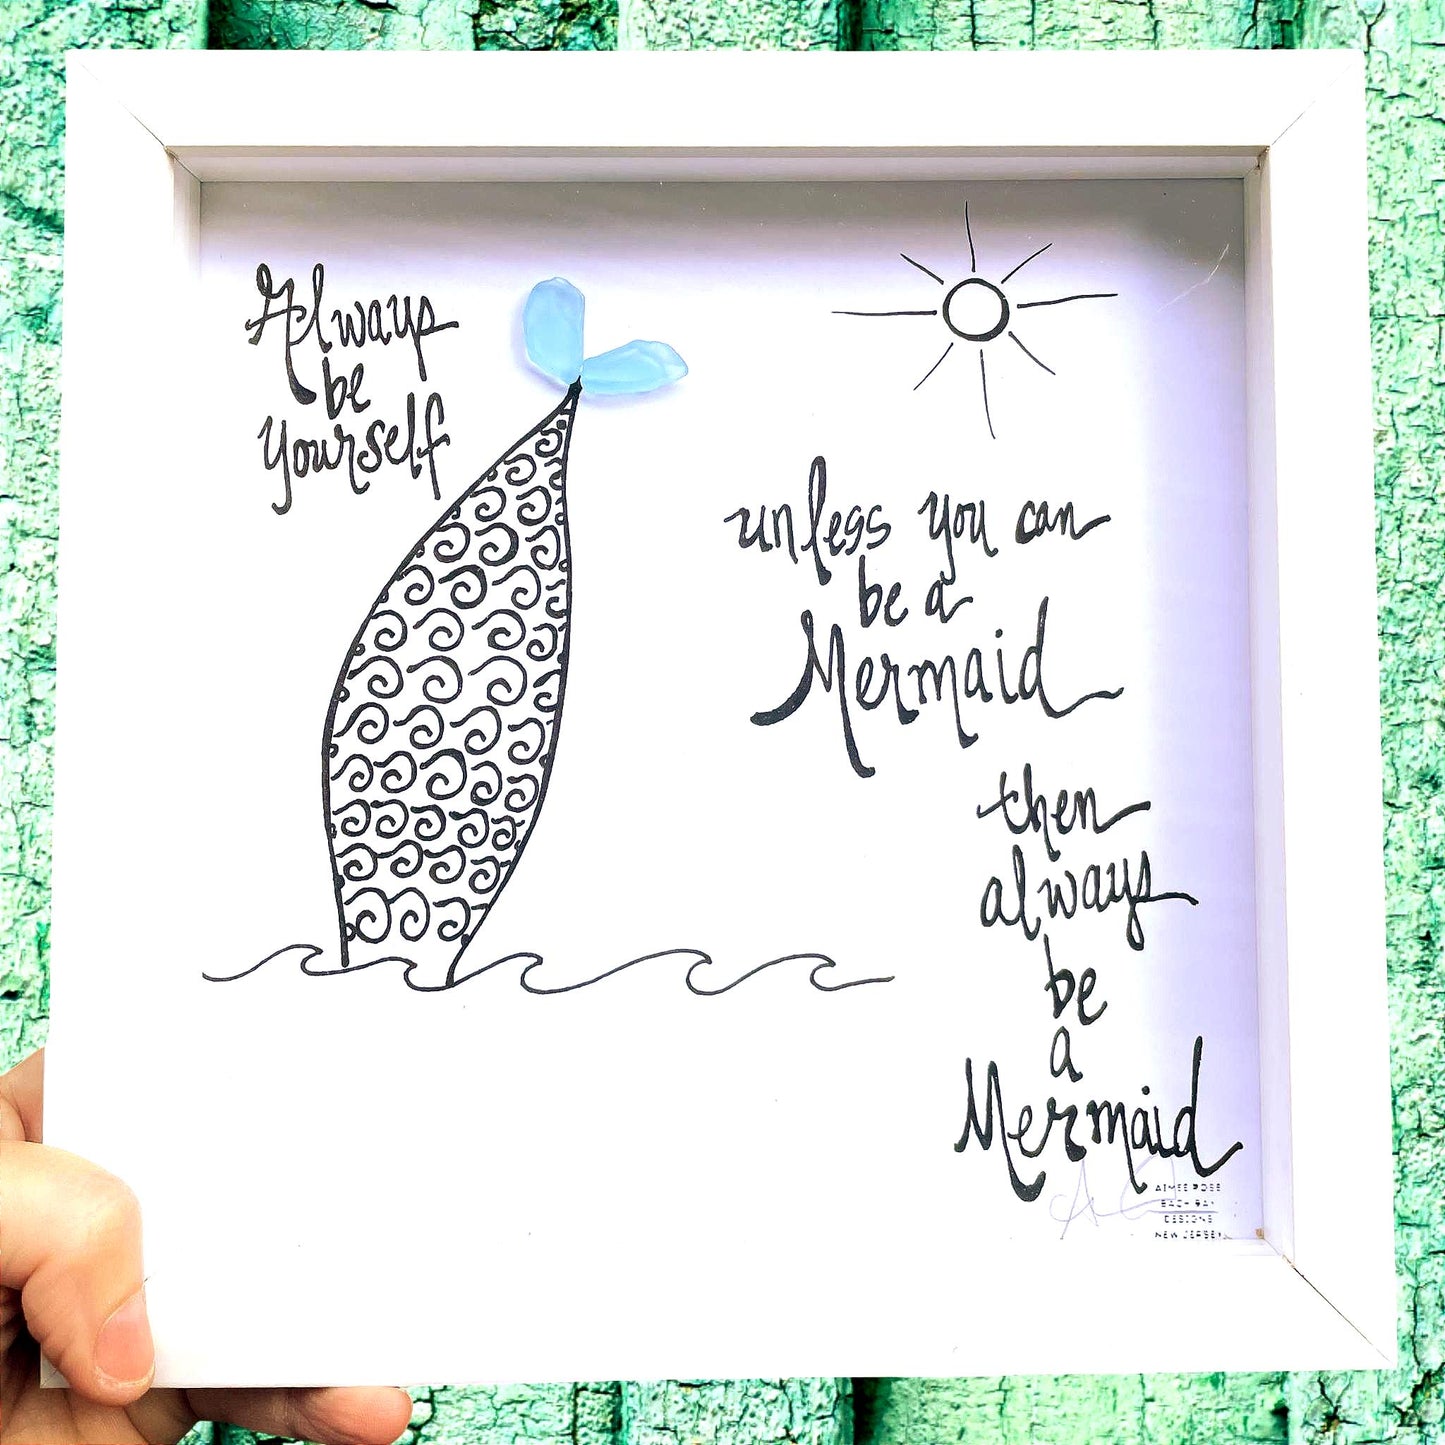 Always
be
yourself
unless you can
be a
Mermaid
then
always
be
a
Mermaid
AIMEE ROSE
DESIGNS
NEW JERSEY